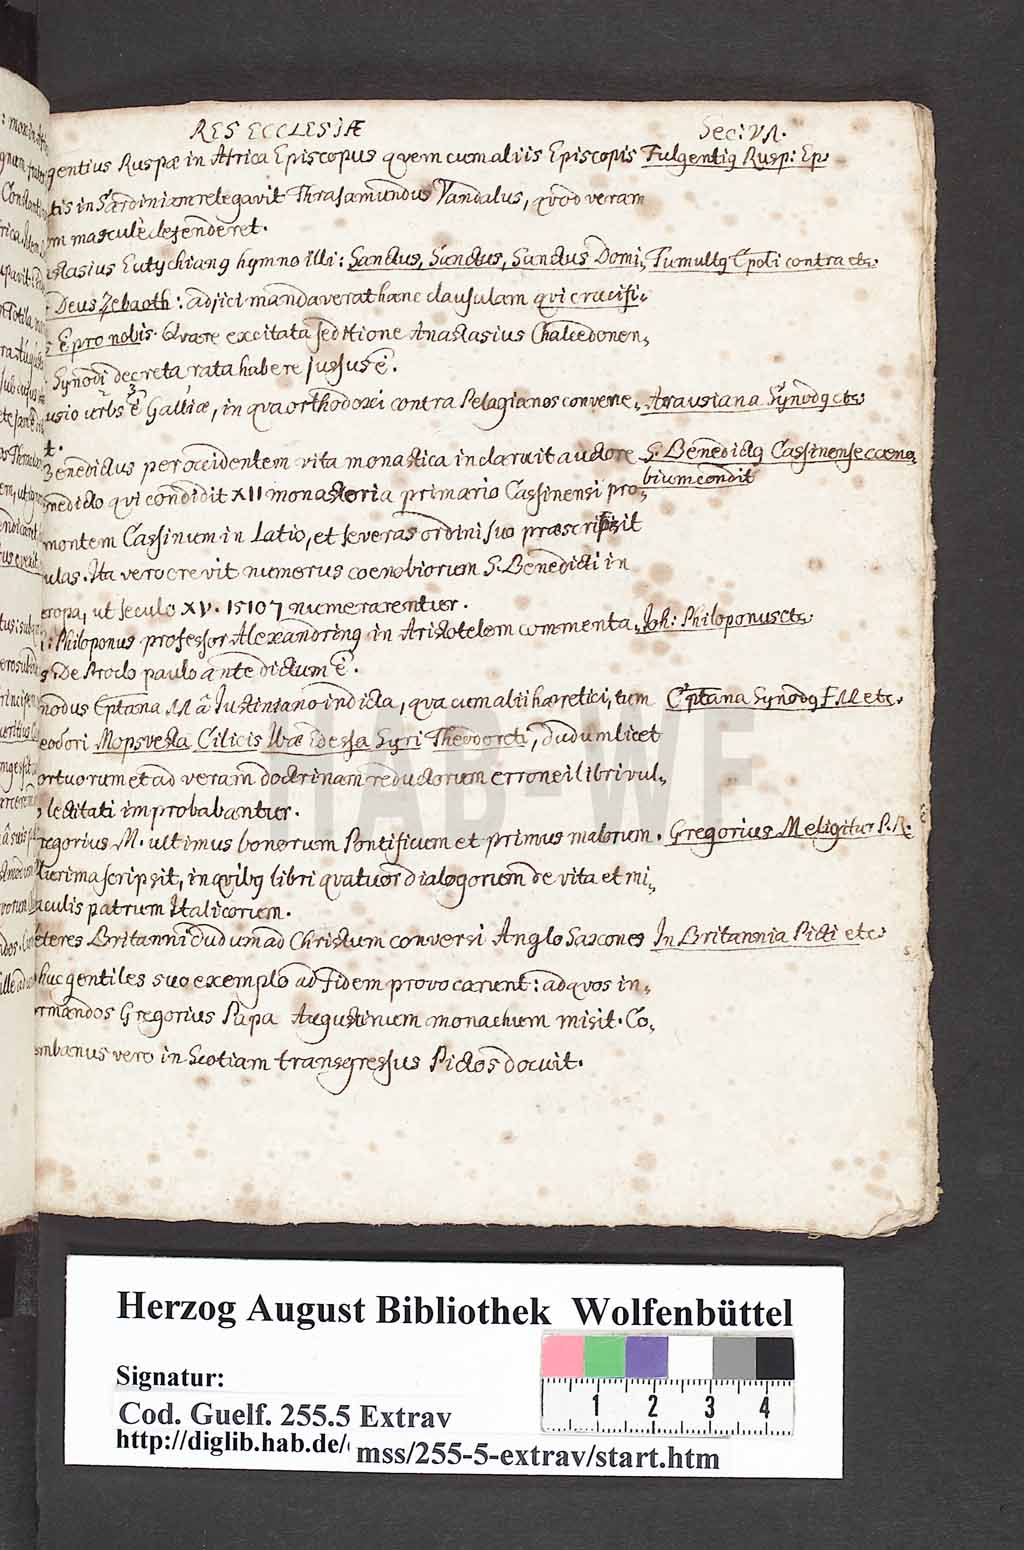 RES ECCLESIÆ Sec: VI.
gentius Ruspæ in Africa Episcopus qvem cum aliis Episcopis Fulgentiq Rusp: Ep.
tis in Sardiniam relegavit Thrasamundus Vandalus, qvod veram
m masculè defenderet.
stasius Eutychianq hymno illi: Sanctus, Sanctus, Sanctus Domi, Tumultq Cpoli contra etc.
Deus Zebaoth: adjici mandaverat hanc clausulam qvi crucifi,
s E pro nobis. Qvare excitata seditione Anastasius Chalcedonen,
Synodi decreta rata habere jussus ē.
usio urbs ē Galliæ, in qva orthodoxi contra Pelagianos convene, Arausiana Synodq etc.
t.
Benedictus per occidentem vita monastica inclaruit auctore S. Benedictq Cassinense cæno,
bium condit
nedicto qvi condidit XII monasteria primario Cassinensi pro,
montem Cassinum in Latio, et severas ordini suo præscripsit
ulas. Ita vero crevit numerus coenobiorum S. Benedicti in
eropa, ut seculo XV. 15107 numerarentur.
: Philoponus professor Alexandrinq in Aristotelem commenta, Joh: Philoponus etc.
s. De Proclo paulo ante dictum ē.
nodus Cptana M â Justiniano indicta, qva cum alii hæretici, tum Cptana Synodq M etc.
eodori Mopsvesta Cilicis Ibæ Edessa Syri Theodoreti, dudum licet
ortuorum et ad veram doctrinam reductorum erronei libri vul,
lectitati improbabantur.
regorius M. ultimus bonorum Pontificum et primus malorum. Gregorius M eligitur P. R.
lurima scripsit, in qvibq libri qvatuor dialogorum de vita et mi,
aculis patrum Italicorum.
eteres Britanni dudum ad Christum conversi Anglo Saxones In Britannia Picti etc.
huc gentiles suo exemplo ad fidem provocarunt: ad qvos in,
ormandos Gregorius Papa Augustinum monachum misit. Co,
umbanus vero in Scotiam transgressus Pictos docuit.
HAB-WF
Herzog August Bibliothek Wolfenbüttel
Signatur:
Cod. Guelf. 255.5 Extrav
http://diglib.hab.de/
mss/255-5-extrav/start.htm
1 2 3 4